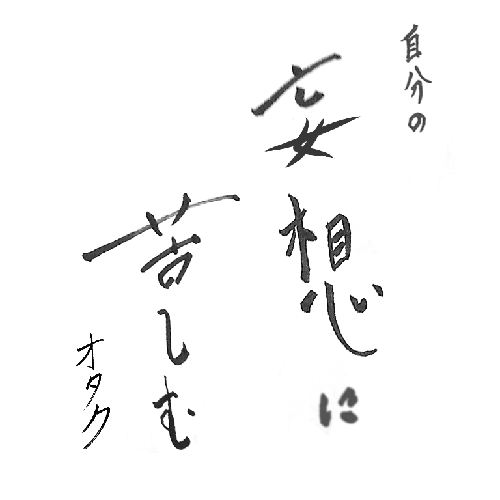 自分の
妄想に
苦しむ
オタク